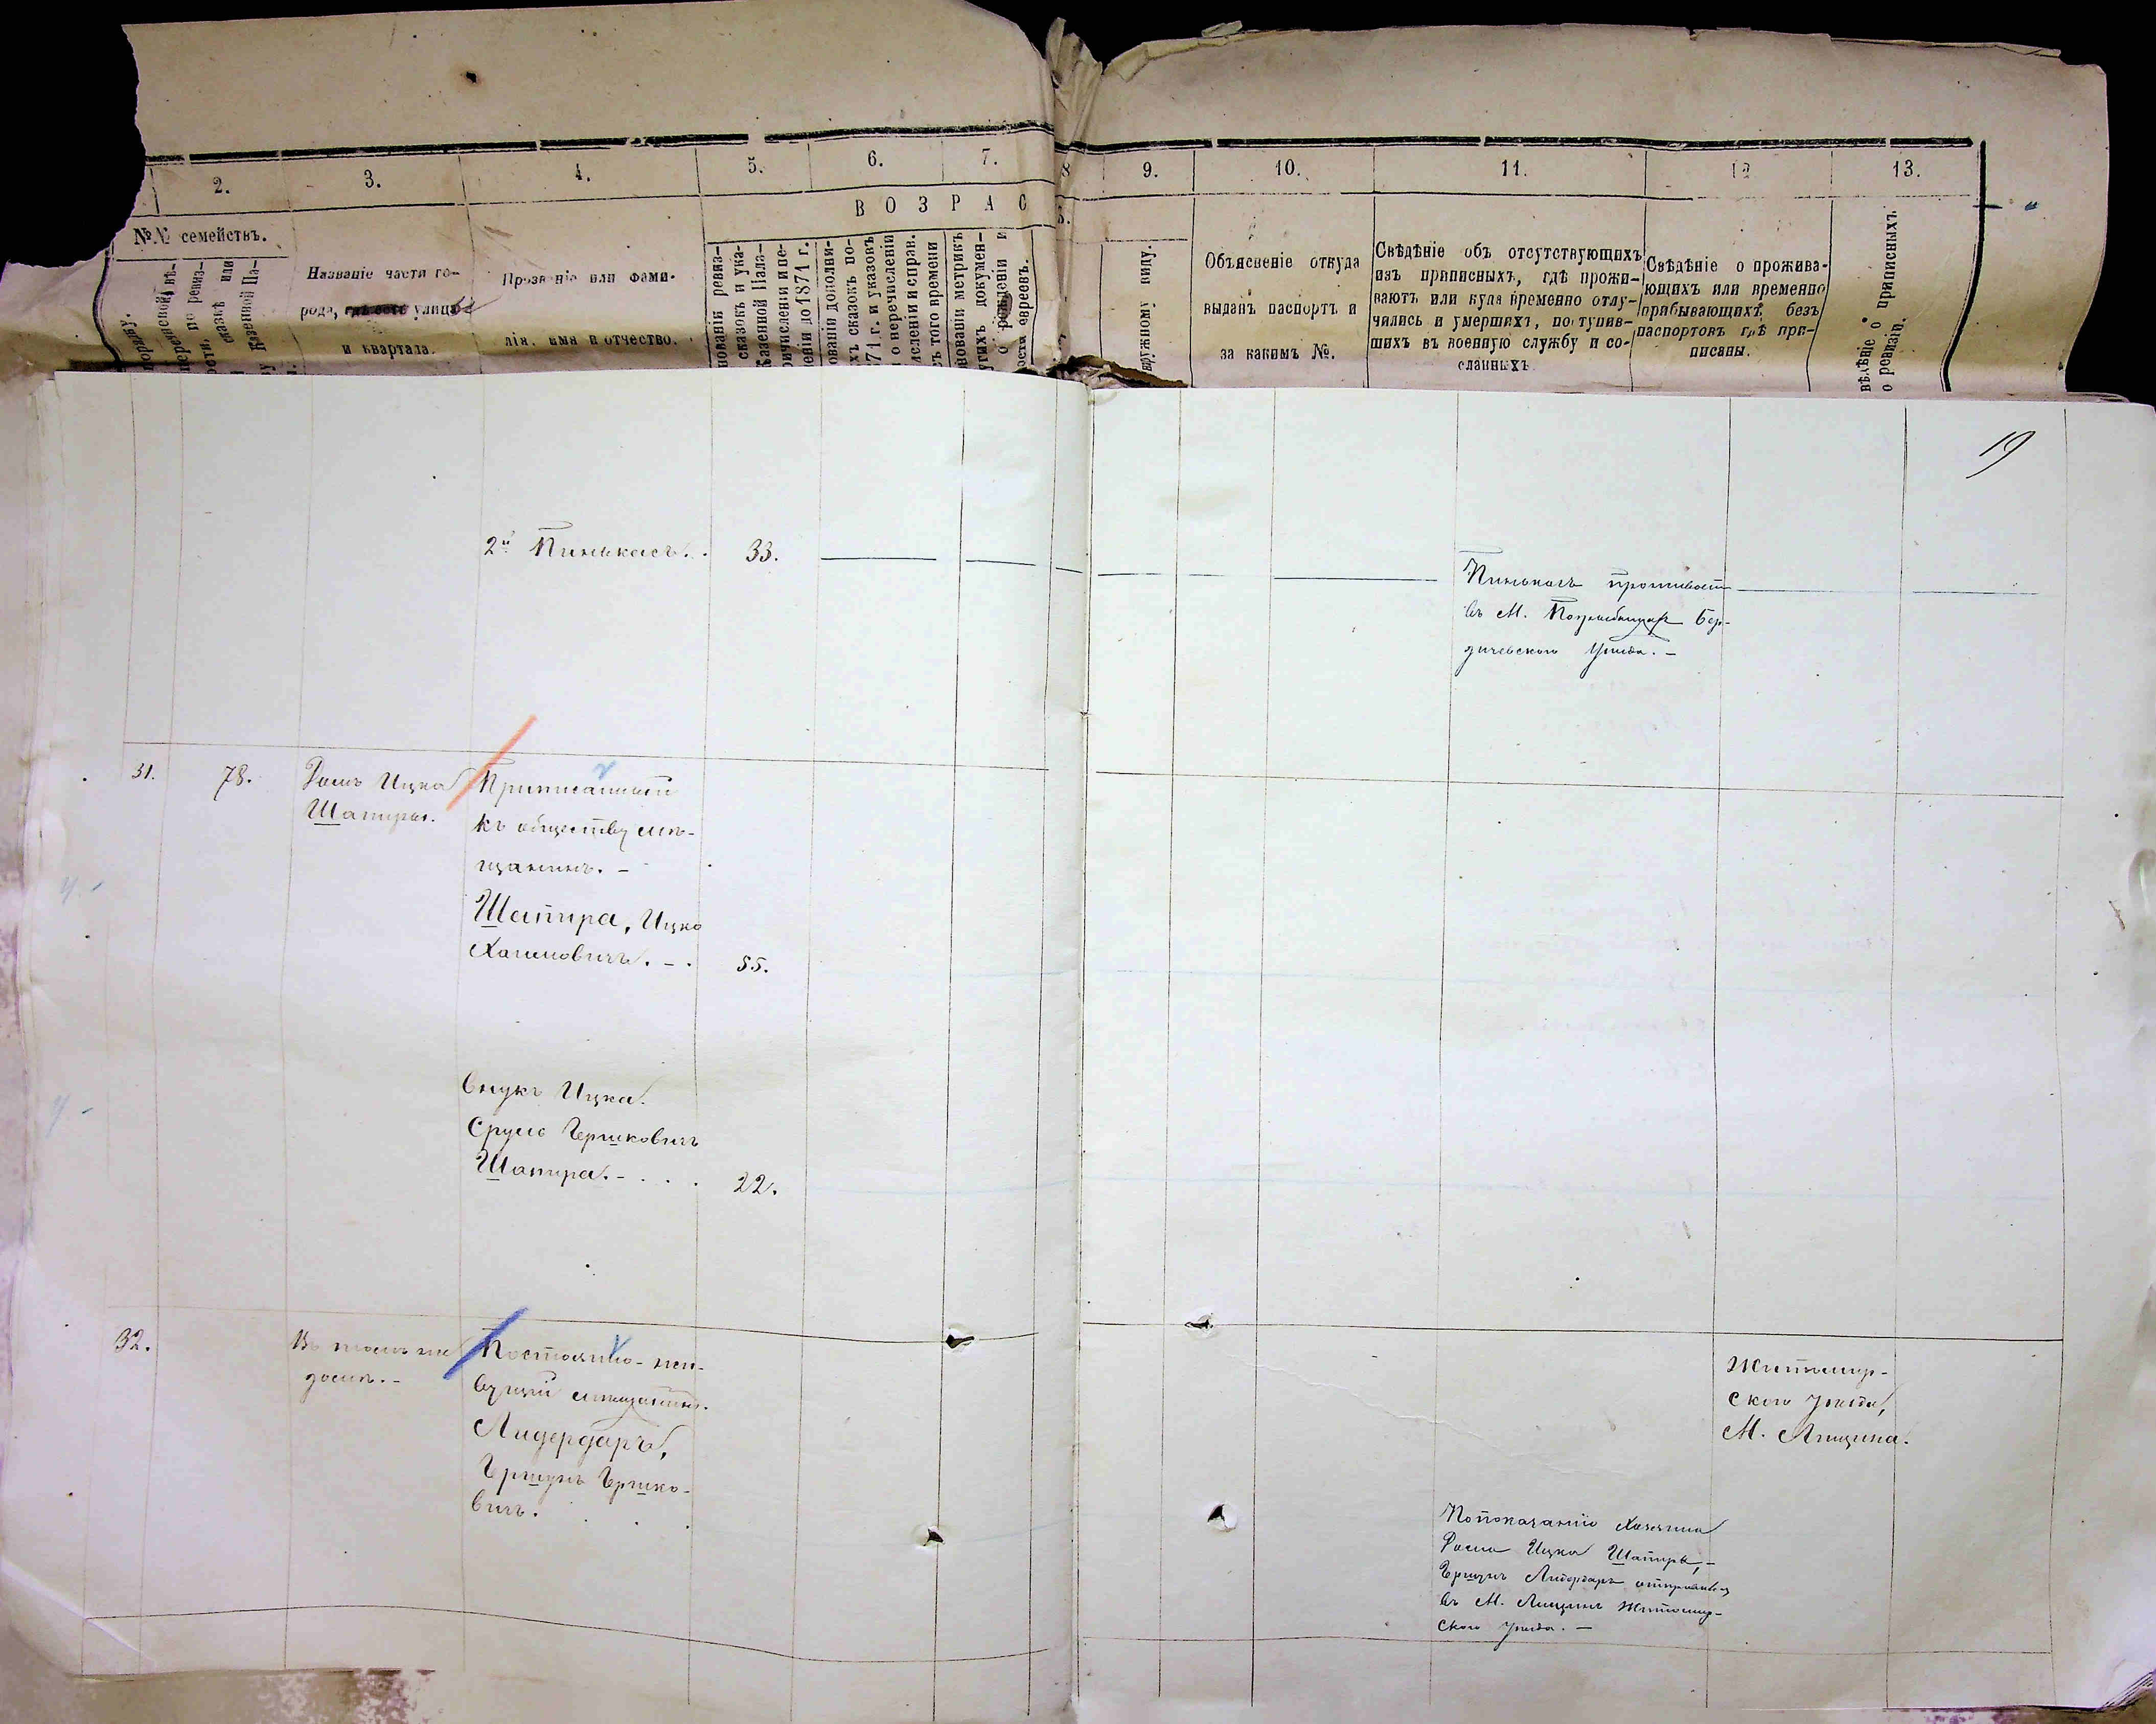 2. 3. 4. 5. 6. 7. 8 9. 10. 11. 12 13.
В О З Р А С
№№ семействъ.
Названіе части го-
рода, улицы
и квартала.
Прозваніе или фами-
лія, имя и отчество.
нованіи ревиз-
сказокъ и ука-
Казенной Пала-
ричисленіи и пе-
еніи до 1871 г.
ованіи дополни-
хъ сказокъ по-
71 г. и указовъ
о перечисленіи
исленіи и справ.
съ того времени
нованіи метрикъ
угихъ докумен-
о рожденіи и
еста евреевъ.
наружному виду.
Объясненіе откуда
выданъ паспортъ и
за какимъ №.
Свѣдѣніе объ отсутствующихъ
изъ приписныхъ, гдѣ прожи-
ваютъ или куда временно отлу-
чились и умершихъ, поступив-
шихъ въ военную службу и со-
сланныхъ
Свѣдѣніе о прожива-
ющихъ или временно
прибывающихъ безъ
паспортовъ гдѣ при-
писаны.
вѣдѣніе о приписныхъ
о ревизіи.
19
2й Пинькасъ. 33.
Пинькасъ проживаетъ
въ М. Погребищахъ Бер-
дичевского Уѣзда. -
31. 78. Домъ Ицка
Шапиры.
Приписанный
къ обществу мѣ-
щанинъ. -
Шапира, Ицко
Хаимовичъ. - . 55.
внукъ Ицка
Сруль Гершковичъ
Шапира. - . . . 22.
32. Въ томъ же
домѣ. -
Постоянно-жи-
вущій мѣщанинъ.
Лидердаръ,
Гершунъ Гершко-
вичъ.
Житомир-
ского уѣзда,
М. Лещина.
По показанію хозяина
Дома Ицка Шапиры, -
Гершунъ Лидердаръ отправился
въ М. Лещинъ Житомир-
ского уѣзда. -